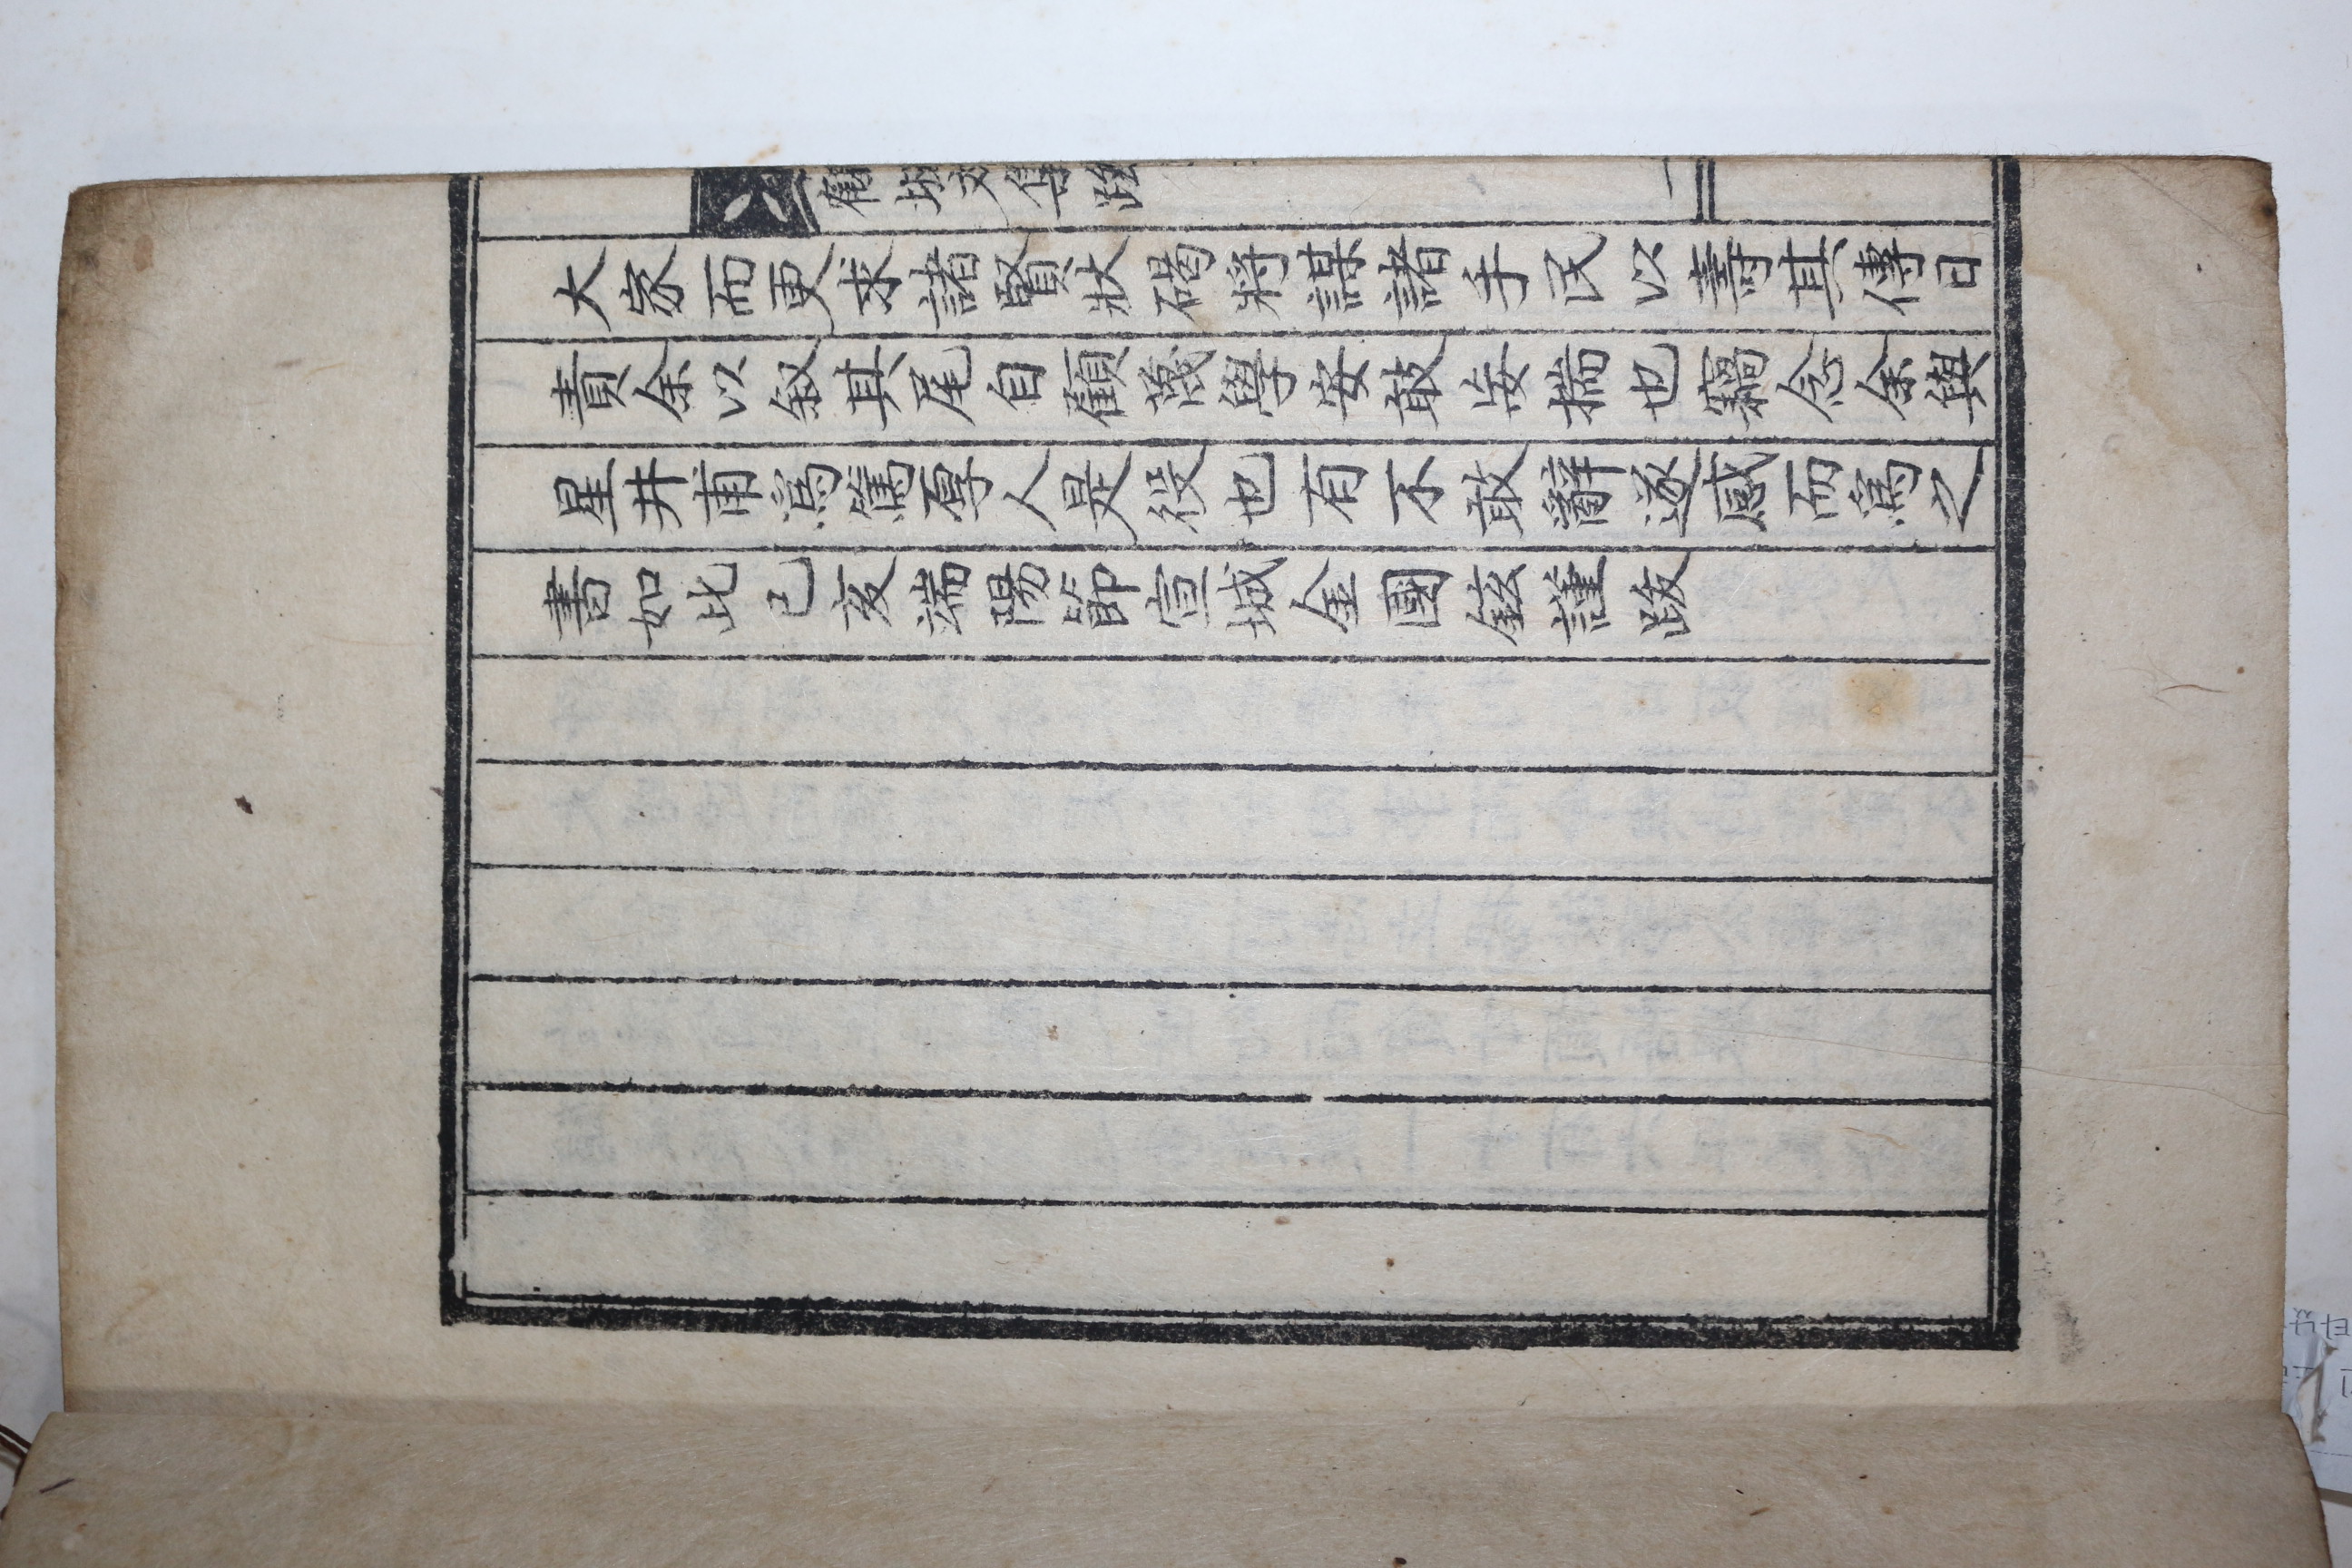 鶴城文集跋
二
大家而更求諸賢狀碣將謀諸手民以壽其傳日
責余以叙其尾自顧蔑學安敢妄揣也竊念余與
星井甫爲篤厚人是役也有不敢辭遂感而爲之
書如此己亥端陽節宣城金國鉉謹跋